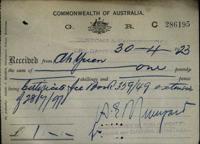 COMMONWEALTH OF AUSTRALIA.
G. R. C 286195
30-4-23
Received from Ah Quan
the sum of one pounds
shillings and pence
being Certificate fee Book 359/49 extended
of 28/7/97
£ 1